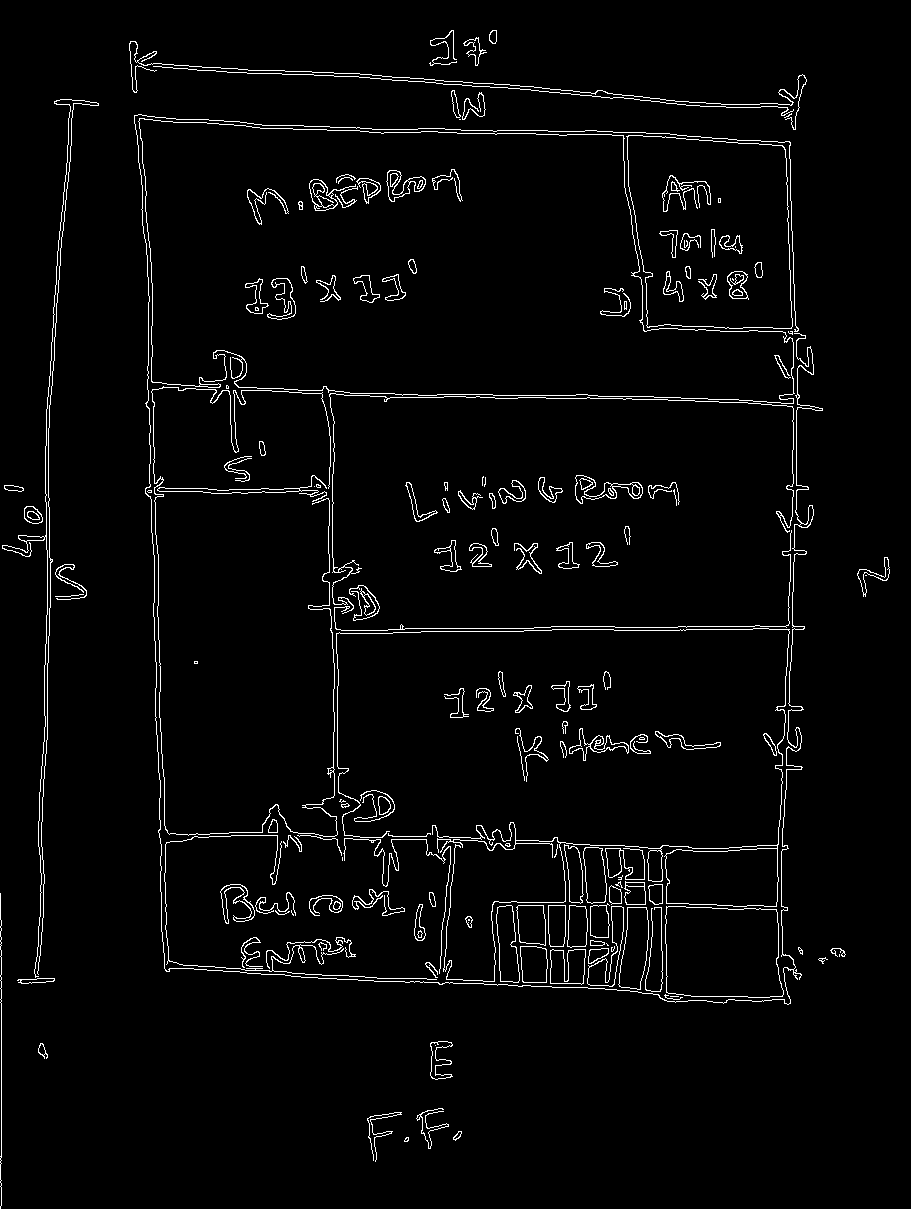 17'
W
M. BEDROOM
13' X 11'
ATT.
Toilet
4' X 8'
D
D
W
5'
LIVING ROOM
12' X 12'
W
40'
S
N
D
12' X 11'
Kitchen
W
D
W
Balcony
ENTRY
6'
E
F.F.